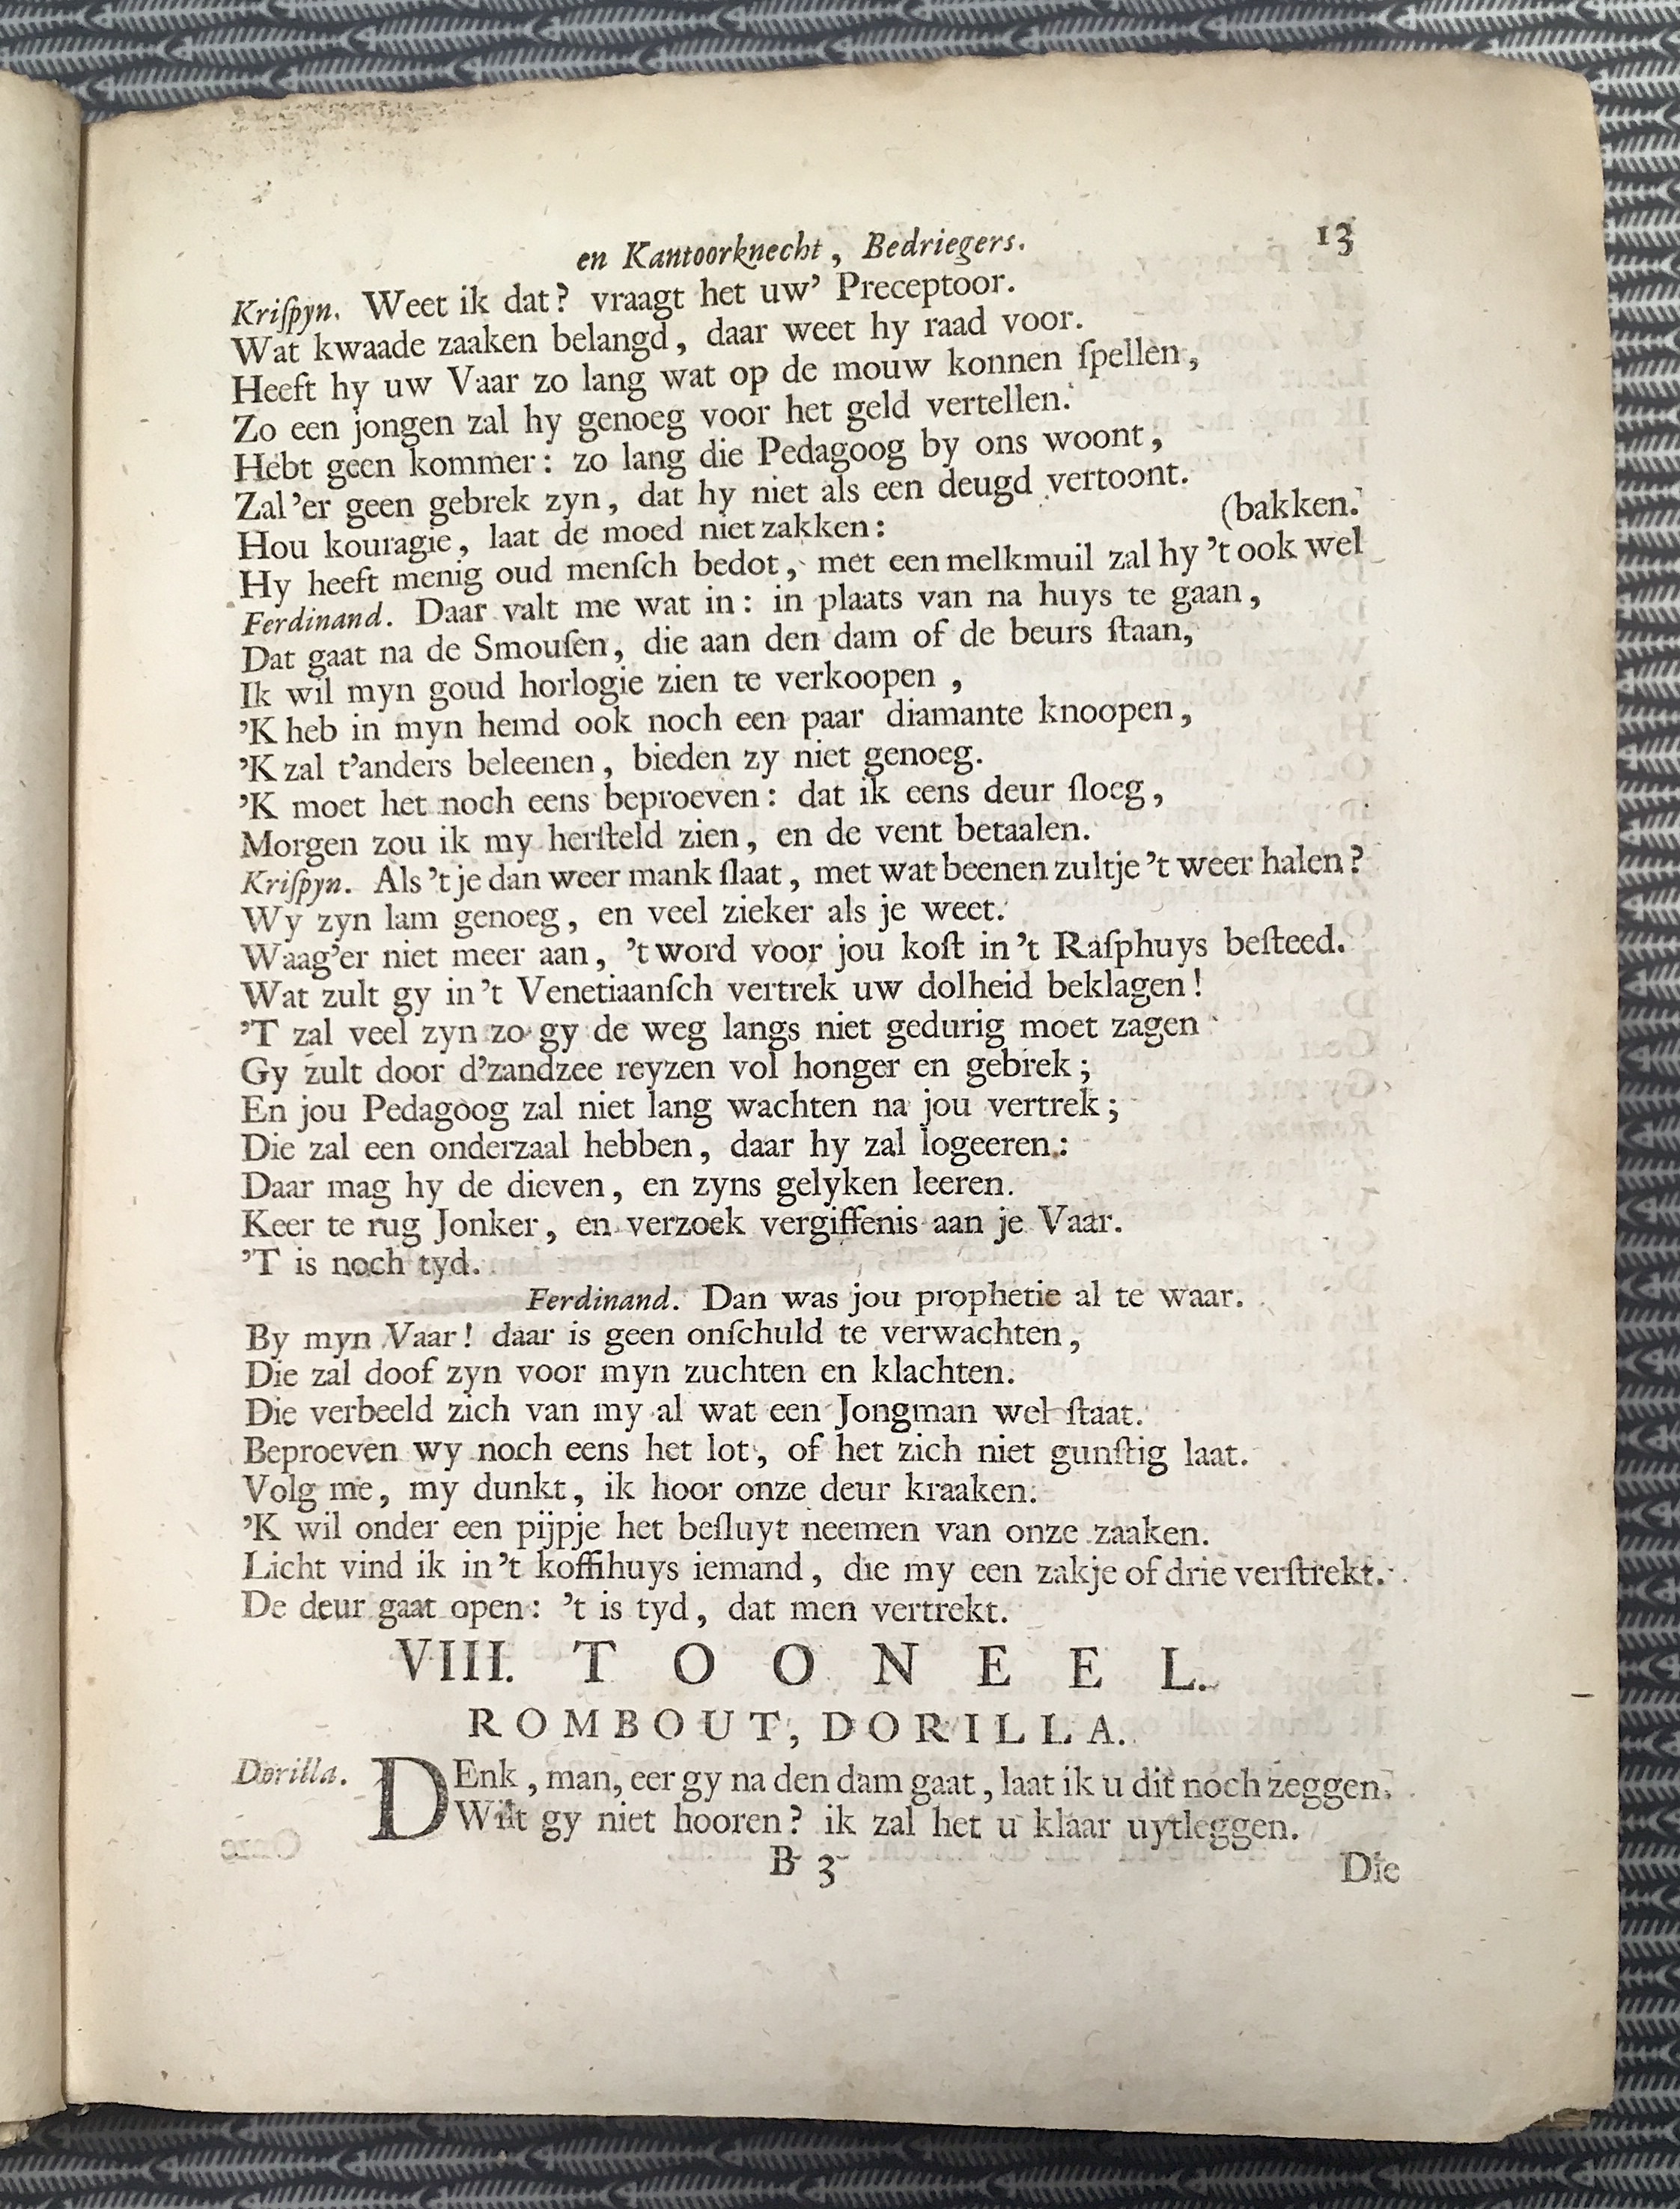 en Kantoorknecht, Bedriegers. 13
Kriſpyn. Weet ik dat? vraagt het uw’ Preceptoor.
Wat kwaade zaaken belangd, daar weet hy raad voor.
Heeft hy uw Vaar zo lang wat op de mouw konnen ſpellen,
Zo een jongen zal hy genoeg voor het geld vertellen.
Hebt geen kommer: zo lang die Pedagoog by ons woont,
Zal ’er geen gebrek zyn, dat hy niet als een deugd vertoont.
Hou kouragie, laat de moed niet zakken: (bakken.
Hy heeft menig oud menſch bedot, met een melkmuil zal hy ’t ook wel
Ferdinand. Daar valt me wat in: in plaats van na huys te gaan,
Dat gaat na de Smouſen, die aan den dam of de beurs ſtaan,
Ik wil myn goud horlogie zien te verkoopen,
’K heb in myn hemd ook noch een paar diamante knoopen,
’K zal t’anders beleenen, bieden zy niet genoeg.
’K moet het noch eens beproeven: dat ik eens deur ſloeg,
Morgen zou ik my herſteld zien, en de vent betaalen.
Kriſpyn. Als ’t je dan weer mank ſlaat, met wat beenen zultje ’t weer halen?
Wy zyn lam genoeg, en veel zieker als je weet.
Waag’er niet meer aan, ’t word voor jou koſt in ’t Raſphuys beſteed.
Wat zult gy in ’t Venetiaanſch vertrek uw dolheid beklagen!
’T zal veel zyn zo gy de weg langs niet gedurig moet zagen
Gy zult door d’zandzee reyzen vol honger en gebrek;
En jou Pedagoog zal niet lang wachten na jou vertrek;
Die zal een onderzaal hebben, daar hy zal logeeren:
Daar mag hy de dieven, en zyns gelyken leeren.
Keer te rug Jonker, en verzoek vergiffenis aan je Vaar.
’T is noch tyd.
Ferdinand. Dan was jou prophetie al te waar.
By myn Vaar! daar is geen onſchuld te verwachten,
Die zal doof zyn voor myn zuchten en klachten.
Die verbeeld zich van my al wat een Jongman wel ſtaat.
Beproeven wy noch eens het lot, of het zich niet gunſtig laat.
Volg me, my dunkt, ik hoor onze deur kraaken.
’K wil onder een pijpje het beſluyt neemen van onze zaaken.
Licht vind ik in ’t koffihuys iemand, die my een zakje of drie verſtrekt.
De deur gaat open: ’t is tyd, dat men vertrekt.
VIII. TOONEEL.
ROMBOUT, DORILLA.
Dorilla. DEnk, man, eer gy na den dam gaat, laat ik u dit noch zeggen.
Wilt gy niet hooren? ik zal het u klaar uytleggen.
B 3 Die